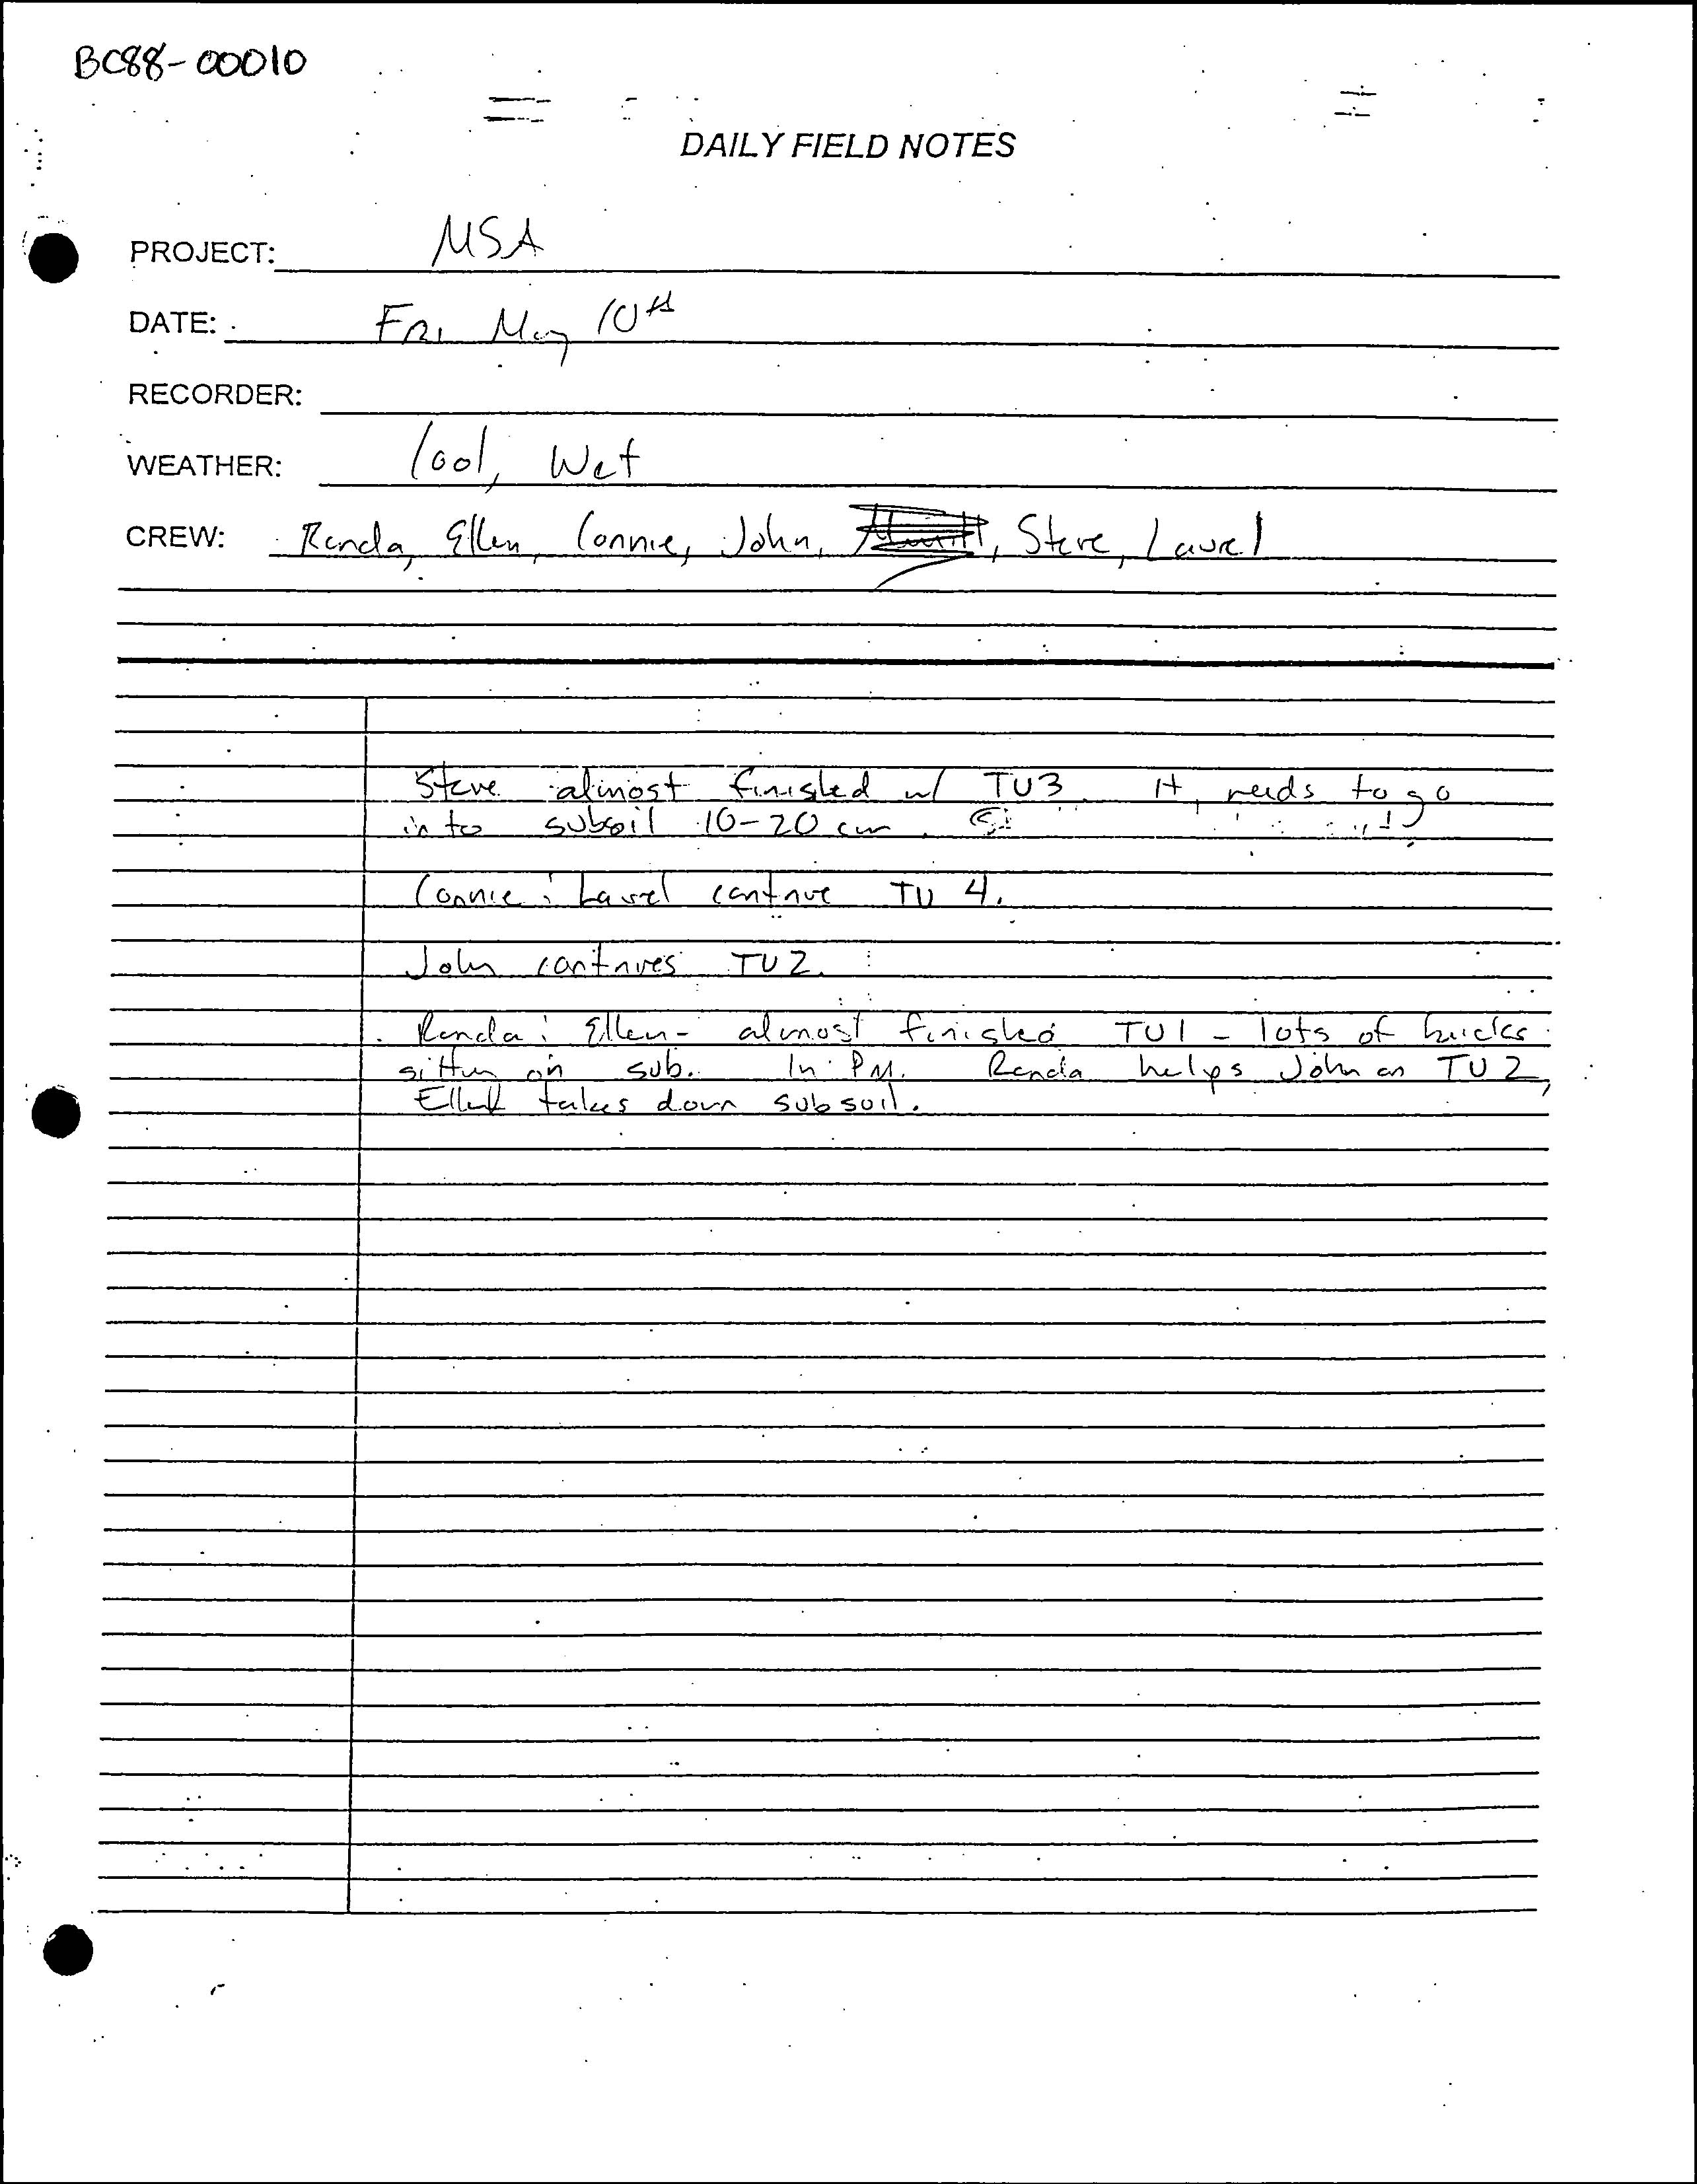 BC88-00010
DAILY FIELD NOTES
PROJECT: MSA
DATE: Fri May 10th
RECORDER:
WEATHER: Cool, Wet
CREW: Randa, Ellen, Connie, John, Steve, Laurel
Steve almost finished w/ TU3. It needs to go
into subsoil 10-20 cm.
Connie : Laurel continue TU 4.
John continues TU2.
Randa : Ellen - almost finished TU1 - lots of bricks
sittin on sub. In PM. Randa helps John on TU2,
Ellen takes down subsoil.